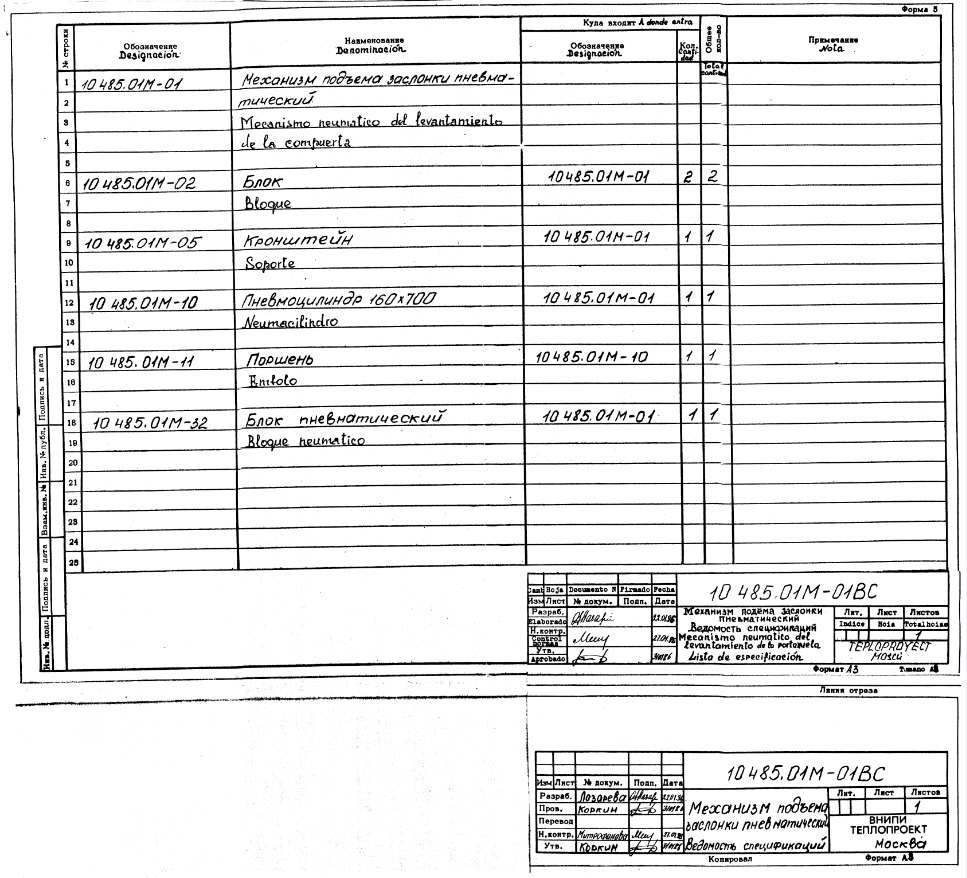 Форма 5
№ строки
Обозначение
Designación
Наименование
Denominación
Куда входит A donde entra
Обозначение
Designación
Кол.
Canti-
dad
Общее кол-во
Total
cantidad
Примечание
Nota
1 10 485.01М-01 Механизм подъема заслонки пневма-
2 тический
3 Mecanismo neumatico del levantamiento
4 de la compuerta
5
6 10 485.01М-02 Блок 10 485.01М-01 2 2
7 Bloque
8
9 10 485.01М-05 Кронштейн 10 485.01М-01 1 1
10 Soporte
11
12 10 485.01М-10 Пневмоцилиндр 160×700 10 485.01М-01 1 1
13 Neumacilindro
14
15 10 485.01М-11 Поршень 10 485.01М-10 1 1
16 Embolo
17
18 10 485.01М-32 Блок пневматический 10 485.01М-01 1 1
19 Bloque neumatico
20
21
22
23
24
25
Инв. № подл. Подпись и дата Взам.инв. № Инв. № дубл. Подпись и дата
Camb Hoja Documento N Firmado Fecha
Изм Лист № докум. Подп. Дата
Разраб.
Elaborado 22.01.86
Н.контр.
Control
normas 22.01.86
Утв.
Aprobado
10 485.01М-01ВС
Механизм подема заслонки
пневматический
Ведомость спецификаций
Mecanismo neumatico del
levantamiento de la portezuela
Lista de especificación
Лит. Лист Листов
Indice Hoia Totalhoias
1
TEPLOPROYECT
MOSCÚ
Формат А3
Линия отреза
10 485.01М-01ВС
Изм Лист № докум. Подп. Дата
Разраб. Лазарева 22.01.86
Пров. Коркин
Перевод
Н.контр. Митрофанова
Утв. Коркин
Механизм подъема
заслонки пневматический
Ведомость спецификаций
Лит. Лист Листов
1
ВНИПИ
ТЕПЛОПРОЕКТ
Москва
Копировал Формат А3